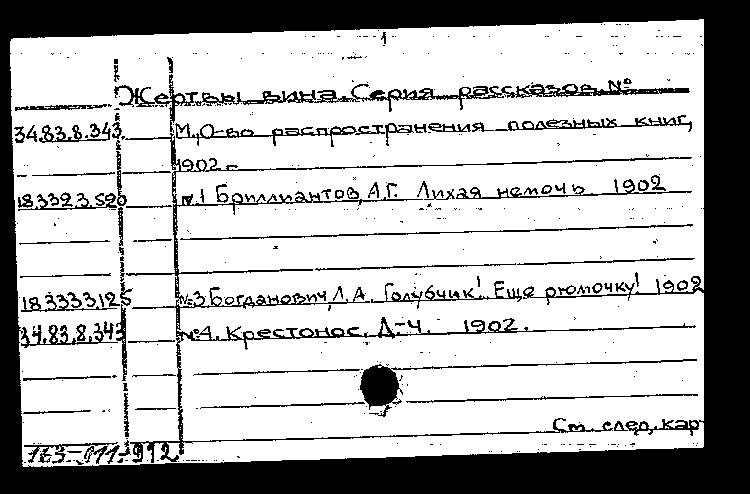 1
Жертвы вина. Серия рассказов. №
34.83.8.343 М., О-во распространения полезных книг,
1902 –
18.332.3.520 №1 Бриллиантов, А.Г. Лихая немочь 1902
18.333.3.125 №3 Богданович, Л.А. Голубчик! Еще рюмочку! 1902
34.83.8.343 №4. Крестонос, Д-Ч. 1902.
См. след. кар
163-011-912